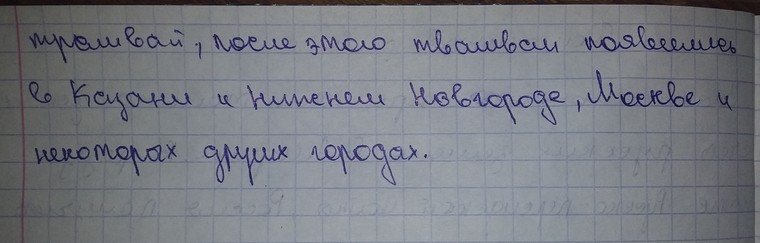 трамвай, после этого тваиваи появились
в Казани и Нижнем Новгороде, Москве и
некоторых других городах.